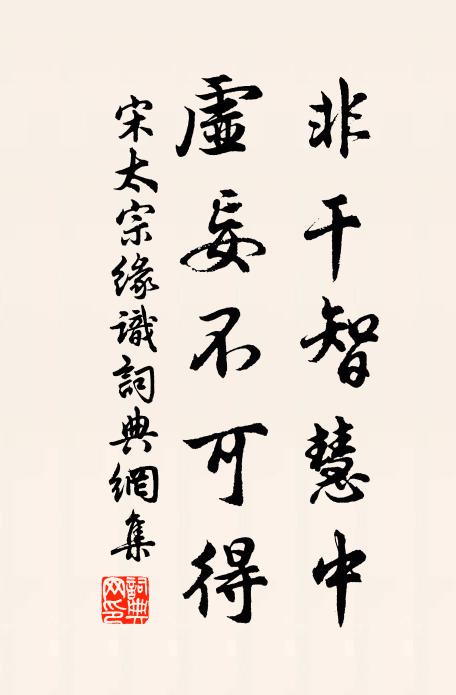 非干智慧中
虛妄不可得
宋太宗緣識詞典網集
詞典網印